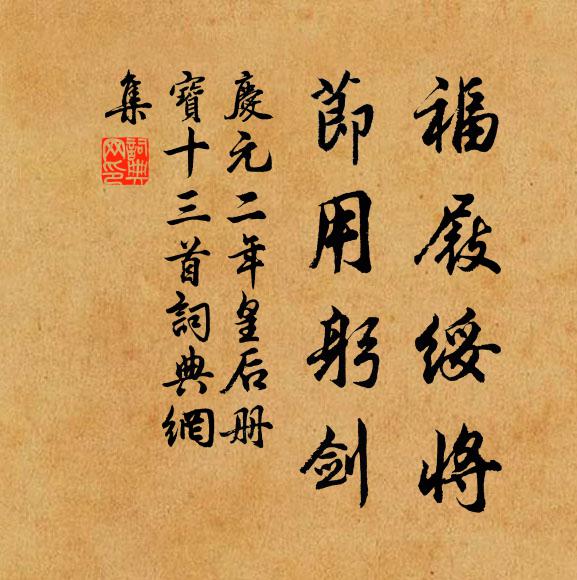 福履綏將
節用躬剑
慶元二年皇后册
寶十三首詞典網
集
詞典
网印